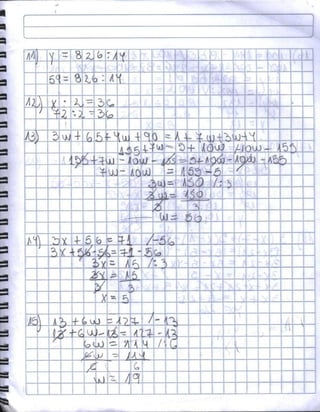 11) y = 826 : 14
59 = 826 : 14
12) x : 2 = 36
72 : 2 = 36
13) 3w + 65 + 4w + 90 = 1 + 7w + 3w + 4
155 + 7w = 5 + 10w /-10w - 155
155 + 7w - 10w - 155 = 5 + 10w - 10w - 155
7w - 10w = 155 - 5
3w = 150 /:3
3w = 150
3 3
w = 50
14) 3x + 56 = 71 /-56
3x + 56 - 56 = 71 - 56
3x = 15 /:3
3x = 15
3 3
x = 5
15) 13 + 6w = 127 /-13
13 + 6w - 13 = 127 - 13
6w = 114 /:6
6w = 114
6 6
w = 19